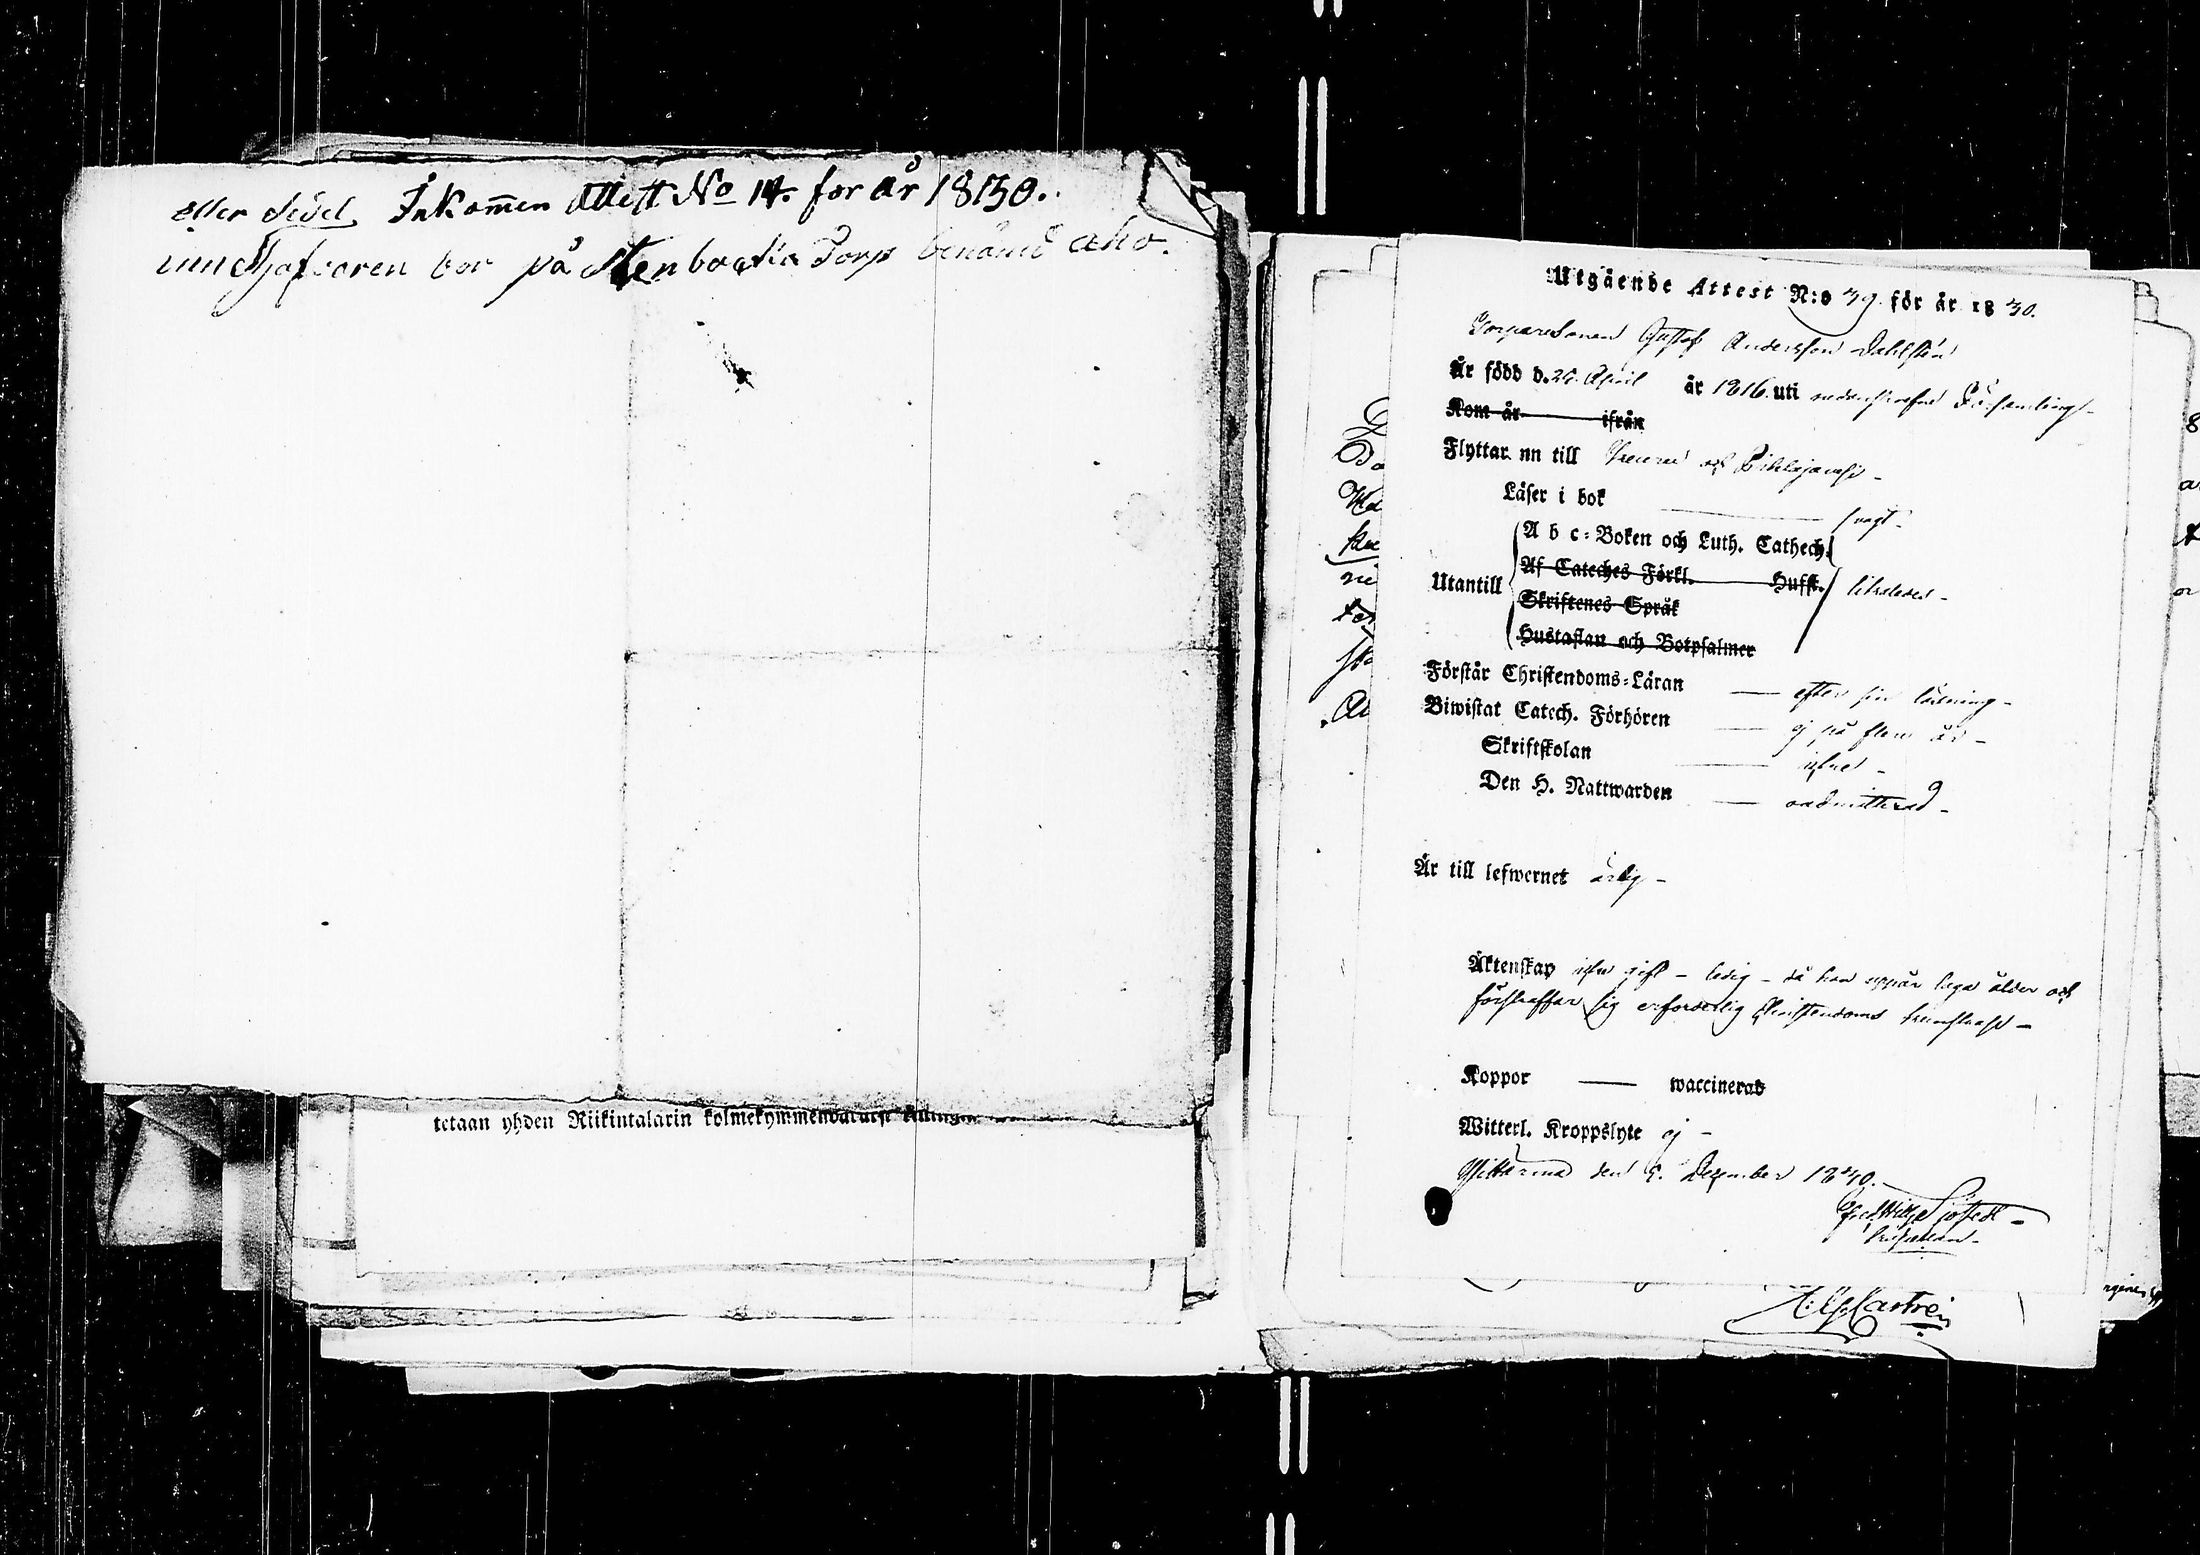 eller sedel Inkommen Attest No 14. for år 1830.
innehafvaren bor på Stenbacka Torp benämd aho.
tetaan yhden Riikintalarin kolmekymmen
Utgående Attest N:o 39. för år 1830.
Torparesonen Gustaf Andersson Dahlsten
Är född d. 26. April år 1816. uti nedanskrefne Församling -
Kom år ifrån
Flyttar nu till och Pihlajavesi -
Läser i bok svagt -
A b c-Boken och Luth. Cathech.
Af Cateches Förkl. Huffst.
Utantill likaledes -
Skriftenes Språk
Hustaflan och Botpsalmer
Förstår Christendoms-Läran efter sin läsning -
Biwistat Catech. Förhören ej på flere år -
Skriftskolan icke -
Den H. Nattwarden oadmitterad -
Är till lefwernet ärlig -
Äktenskap icke gift - ledig - då han uppnår laga ålder och
förskaffar sig erforderlig Christendoms kunskap -
Koppor waccinerad
Witterl. Kroppslyte ej -
den 5. December 1830.
Fred. Wilh. Sjöstedt -
A: G: Castrén